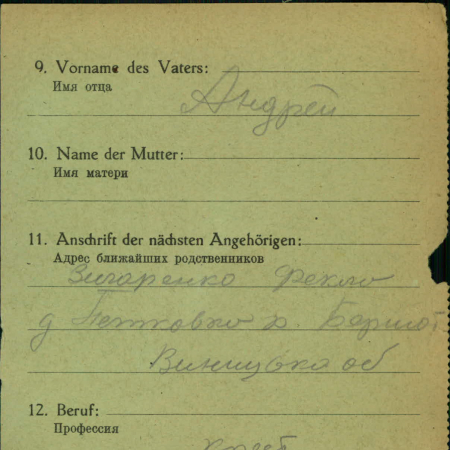 9. Vorname des Vaters:
Имя отца
Андрей
10. Name der Mutter:
Имя матери
11. Anschrift der nächsten Angehörigen:
Адрес ближайших родственников
Фекло
д р. Бершот
Виницька об
12. Beruf:
Профессия